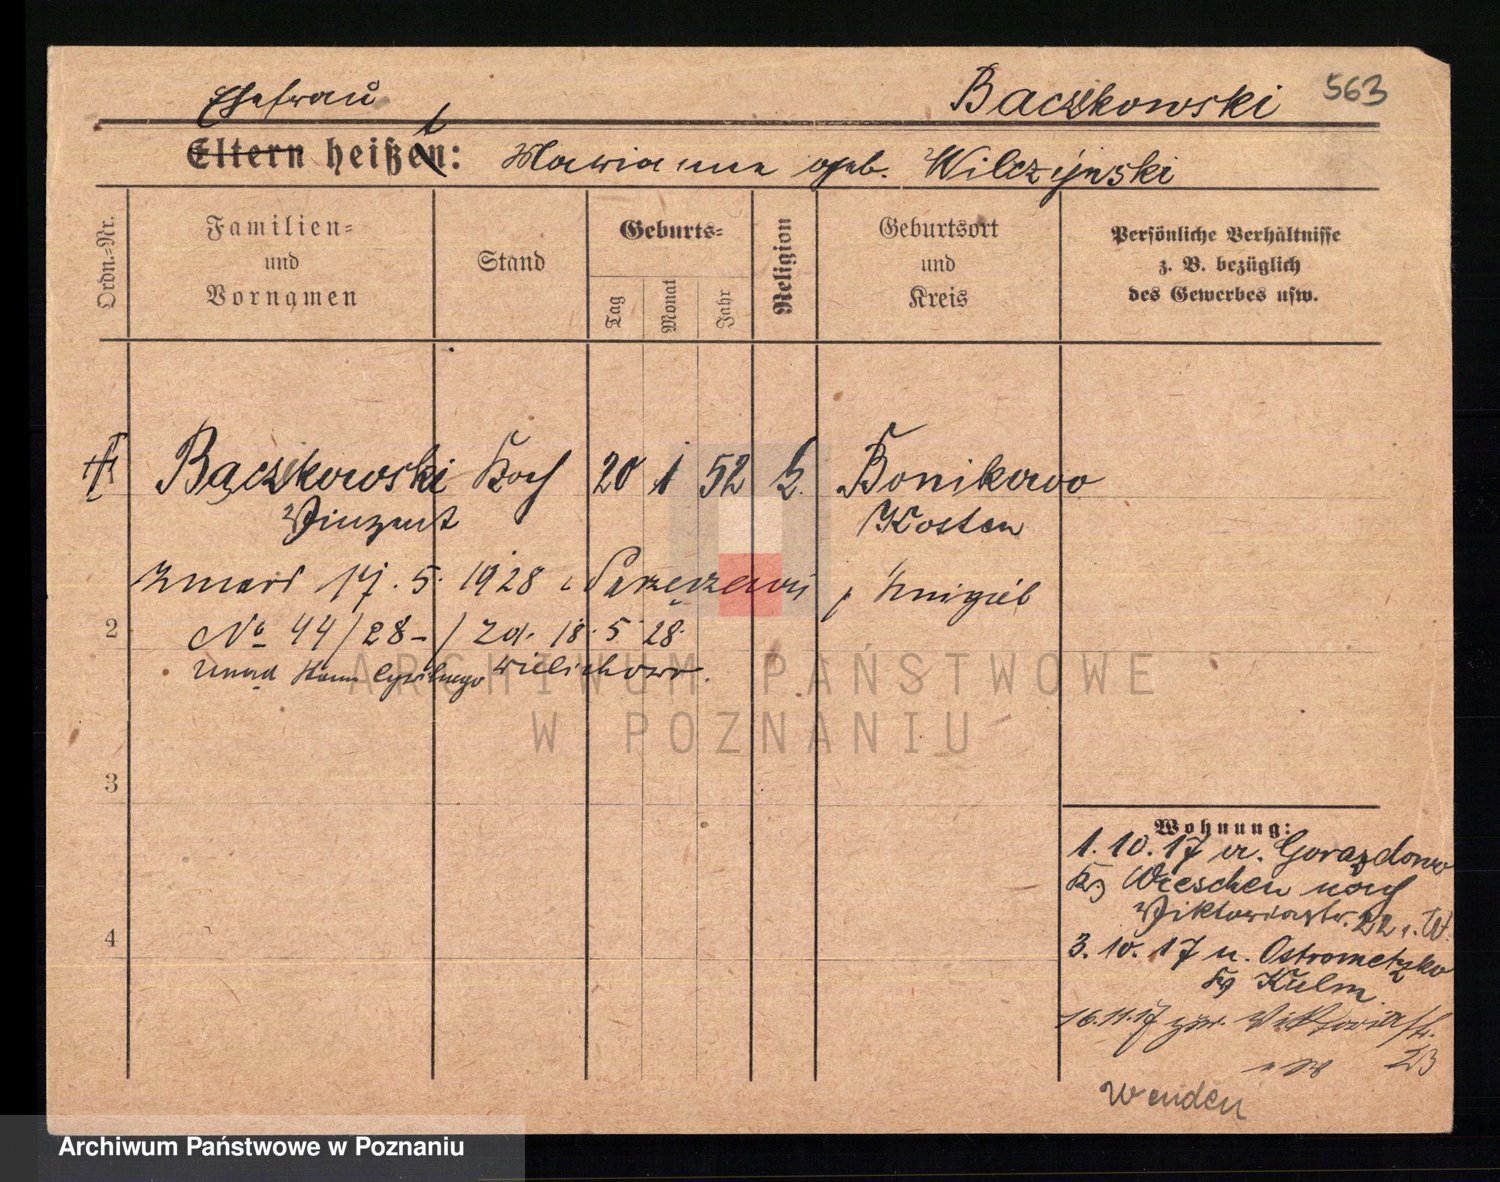 Baczkowski 563
Ehefrau
Eltern heißen: t Marianna geb. Wilczynski
Ordn.-Nr.
Familien-
und
Vornamen
Stand
Geburts-
Tag
Monat
Jahr
Religion
Geburtsort
und
Kreis
Persönliche Verhältnisse
z. B. bezüglich
des Gewerbes usw.
Bączkowski Koch 20 1 52 k. Bonikowo
Vinzent Kosten
zmarł 17. 5. 1928
2
No 44/28 - / zd. 18. 5 28.
Urząd Stanu Cywilnego Wielichowo.
3
4
Wohnung:
1. 10. 17 v. Gorazdowo
Kr Wreschen nach
Viktoriastr. 22
3. 10. 17 n. Ostrometzko
Kr Kulm.
16.11.17 zur. Viktoriastr.
23
Wenden
ARCHIWUM PAŃSTWOWE
W POZNANIU
Archiwum Państwowe w Poznaniu